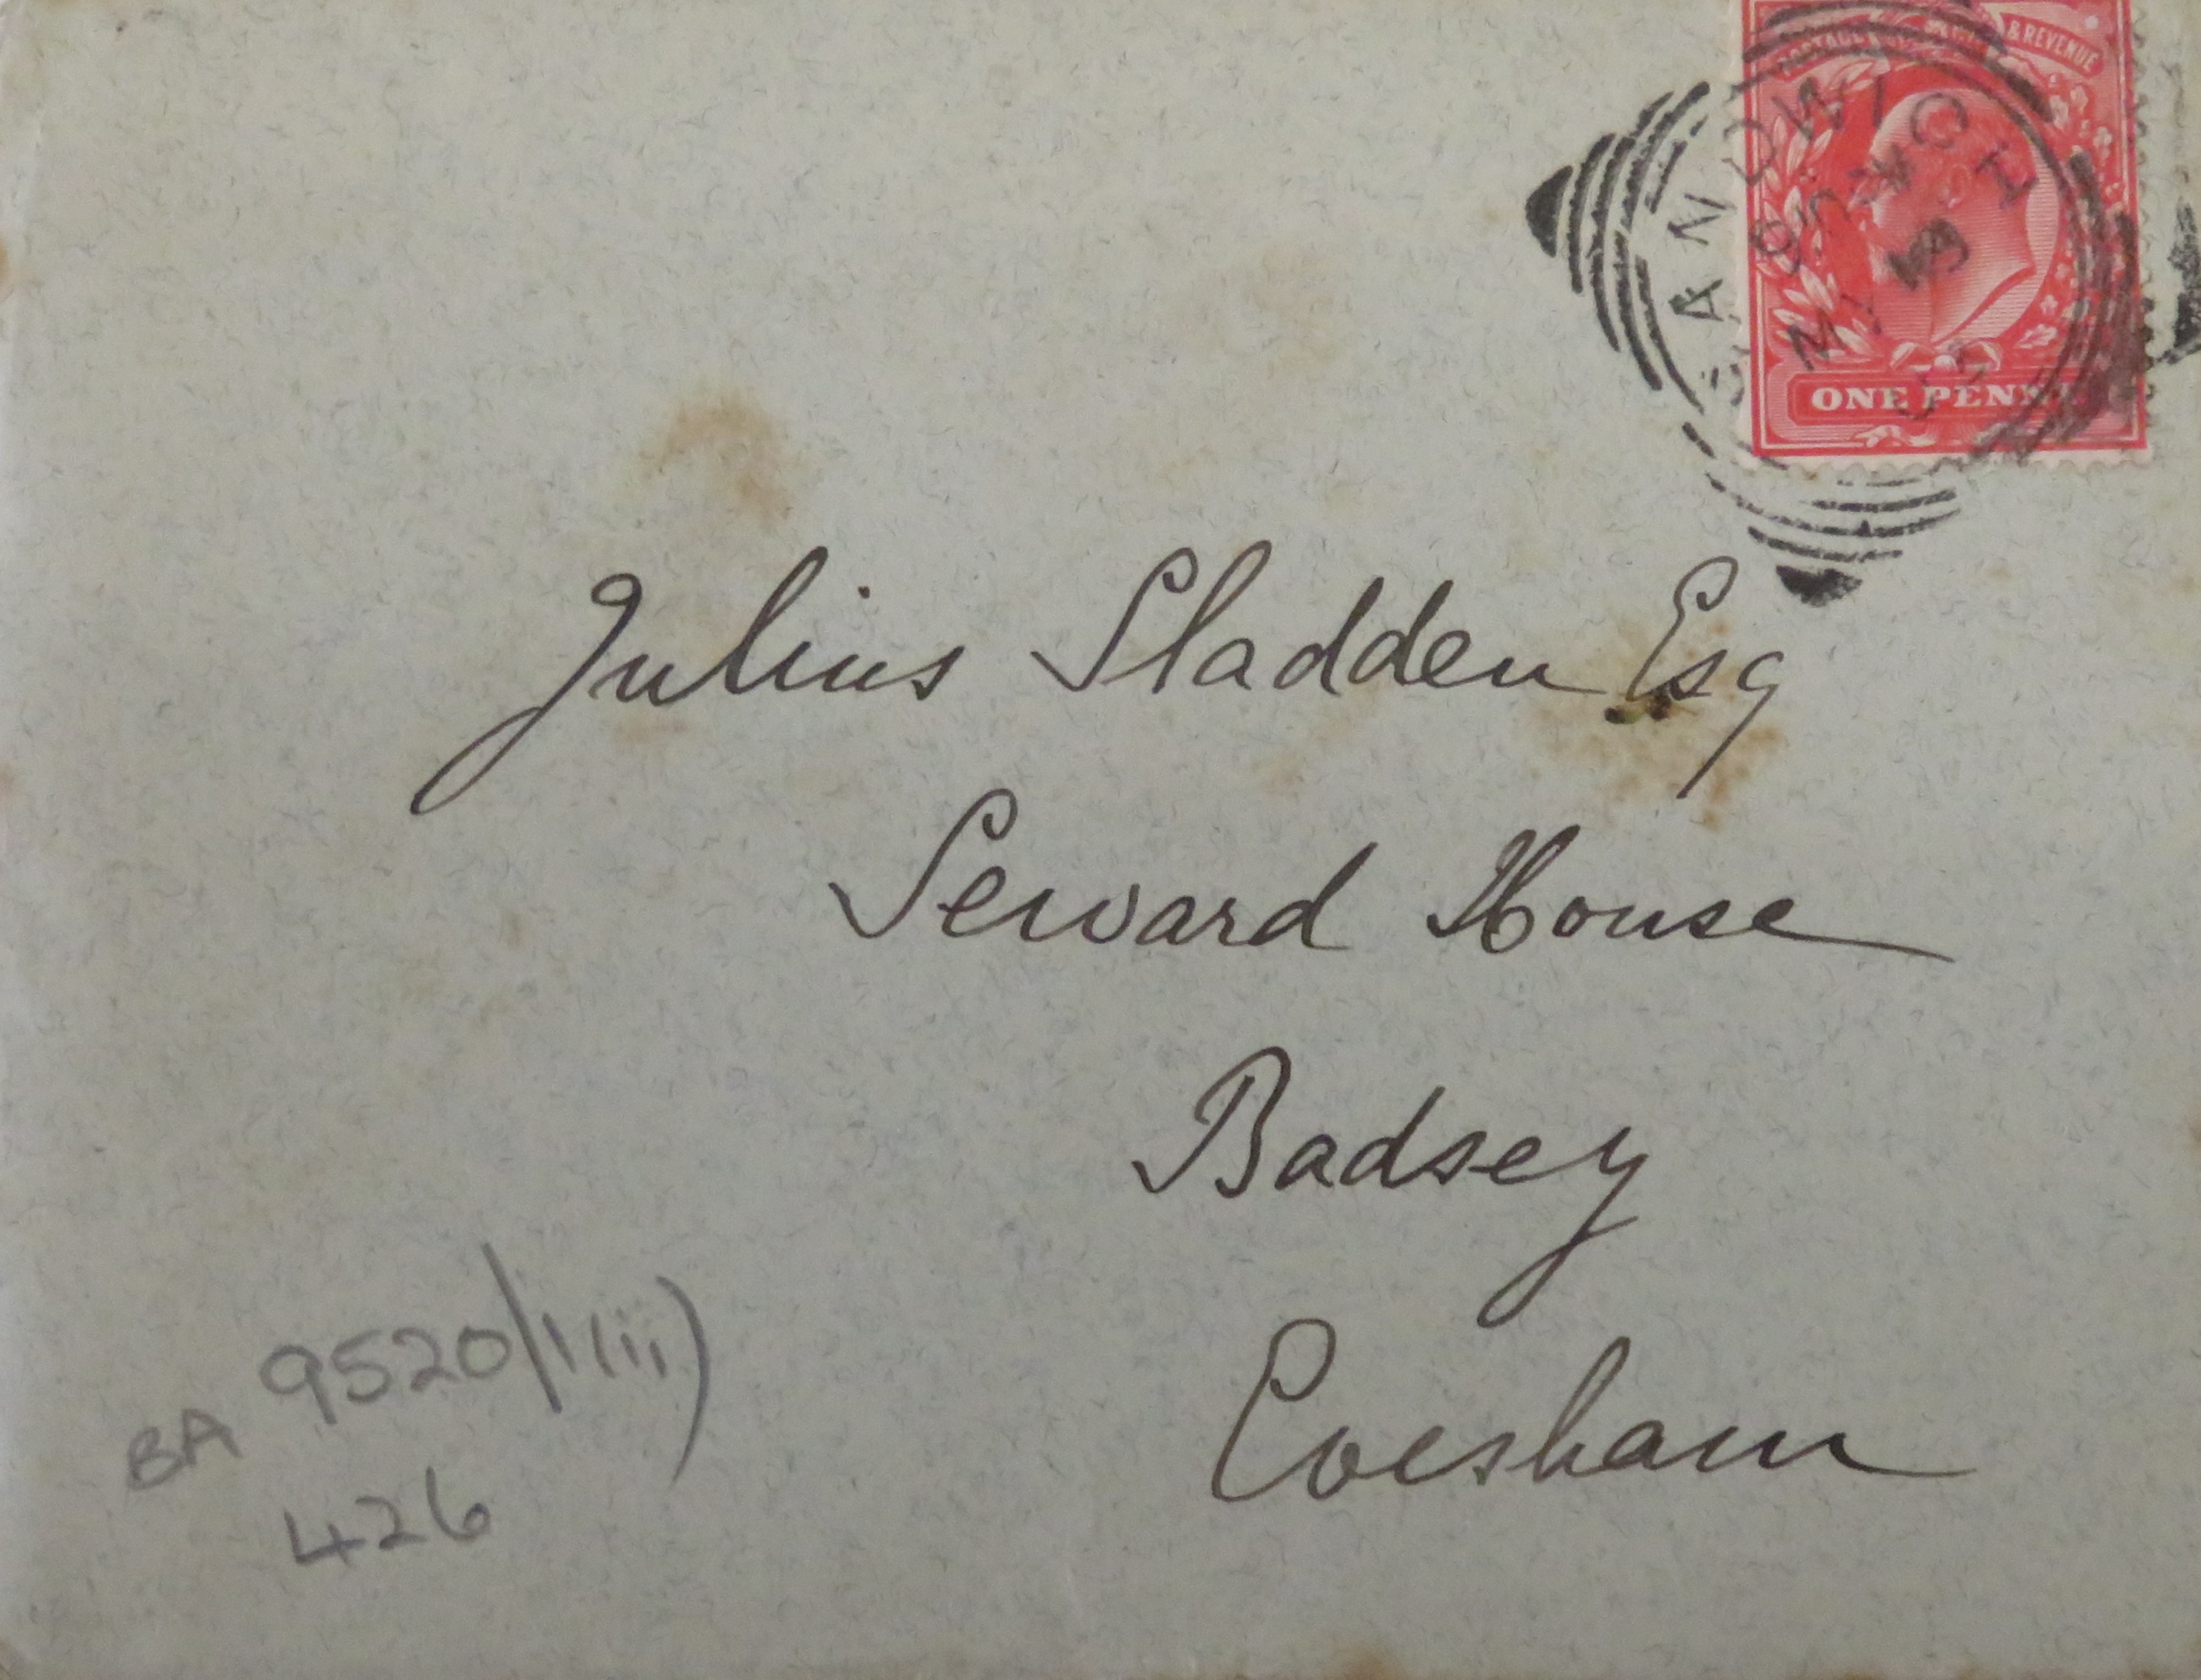 POSTAGE & REVENUE
SANDWICH
ONE PENNY
Julius Sladden Esq
Seward House
Badsey
Evesham
BA 9520/1(iii)
426